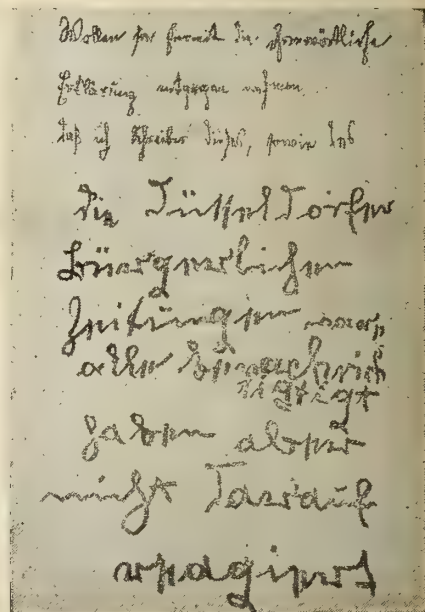 Wollen sie hermit die ehrenwörtliche
Erklärung entgegen nehmen
daß ich Schreiber dieses, sowie das
die Düsseldorfer
Büergerlichen
Zeitungen
alle benachrich
tigt
haben aber
nicht darauf
reagiert